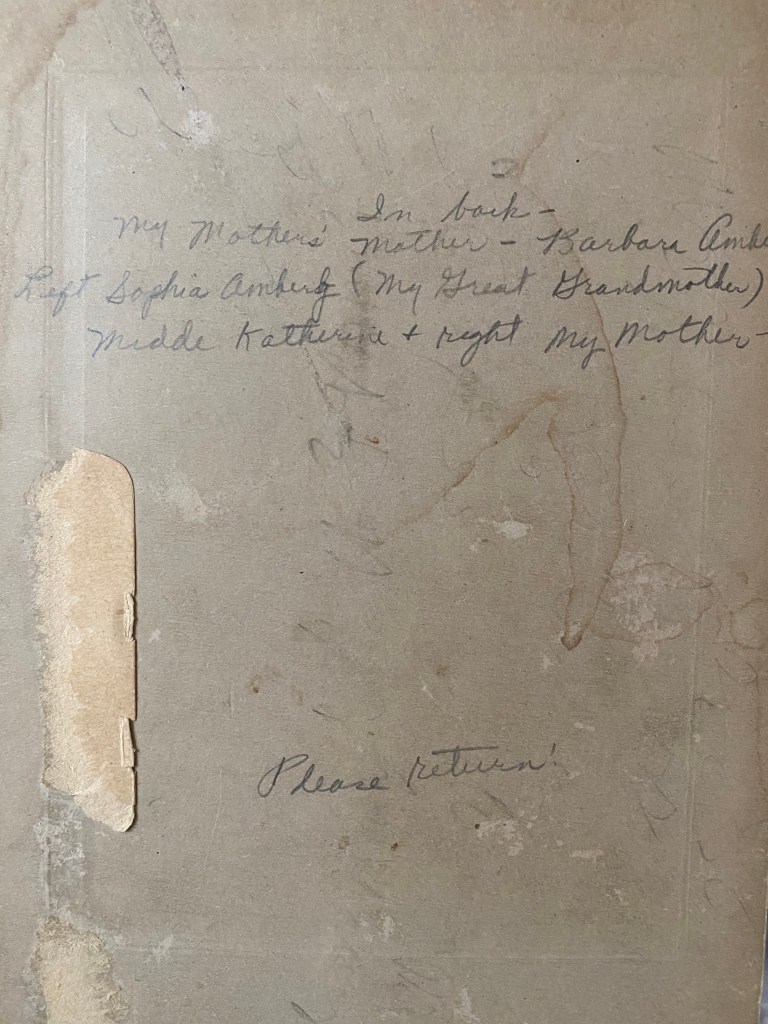 In back -
My Mothers' Mother - Barbara Ambe
Left Sophia Amberg (My Great Grandmother)
Midde Katherine + right My Mother -
Please return!